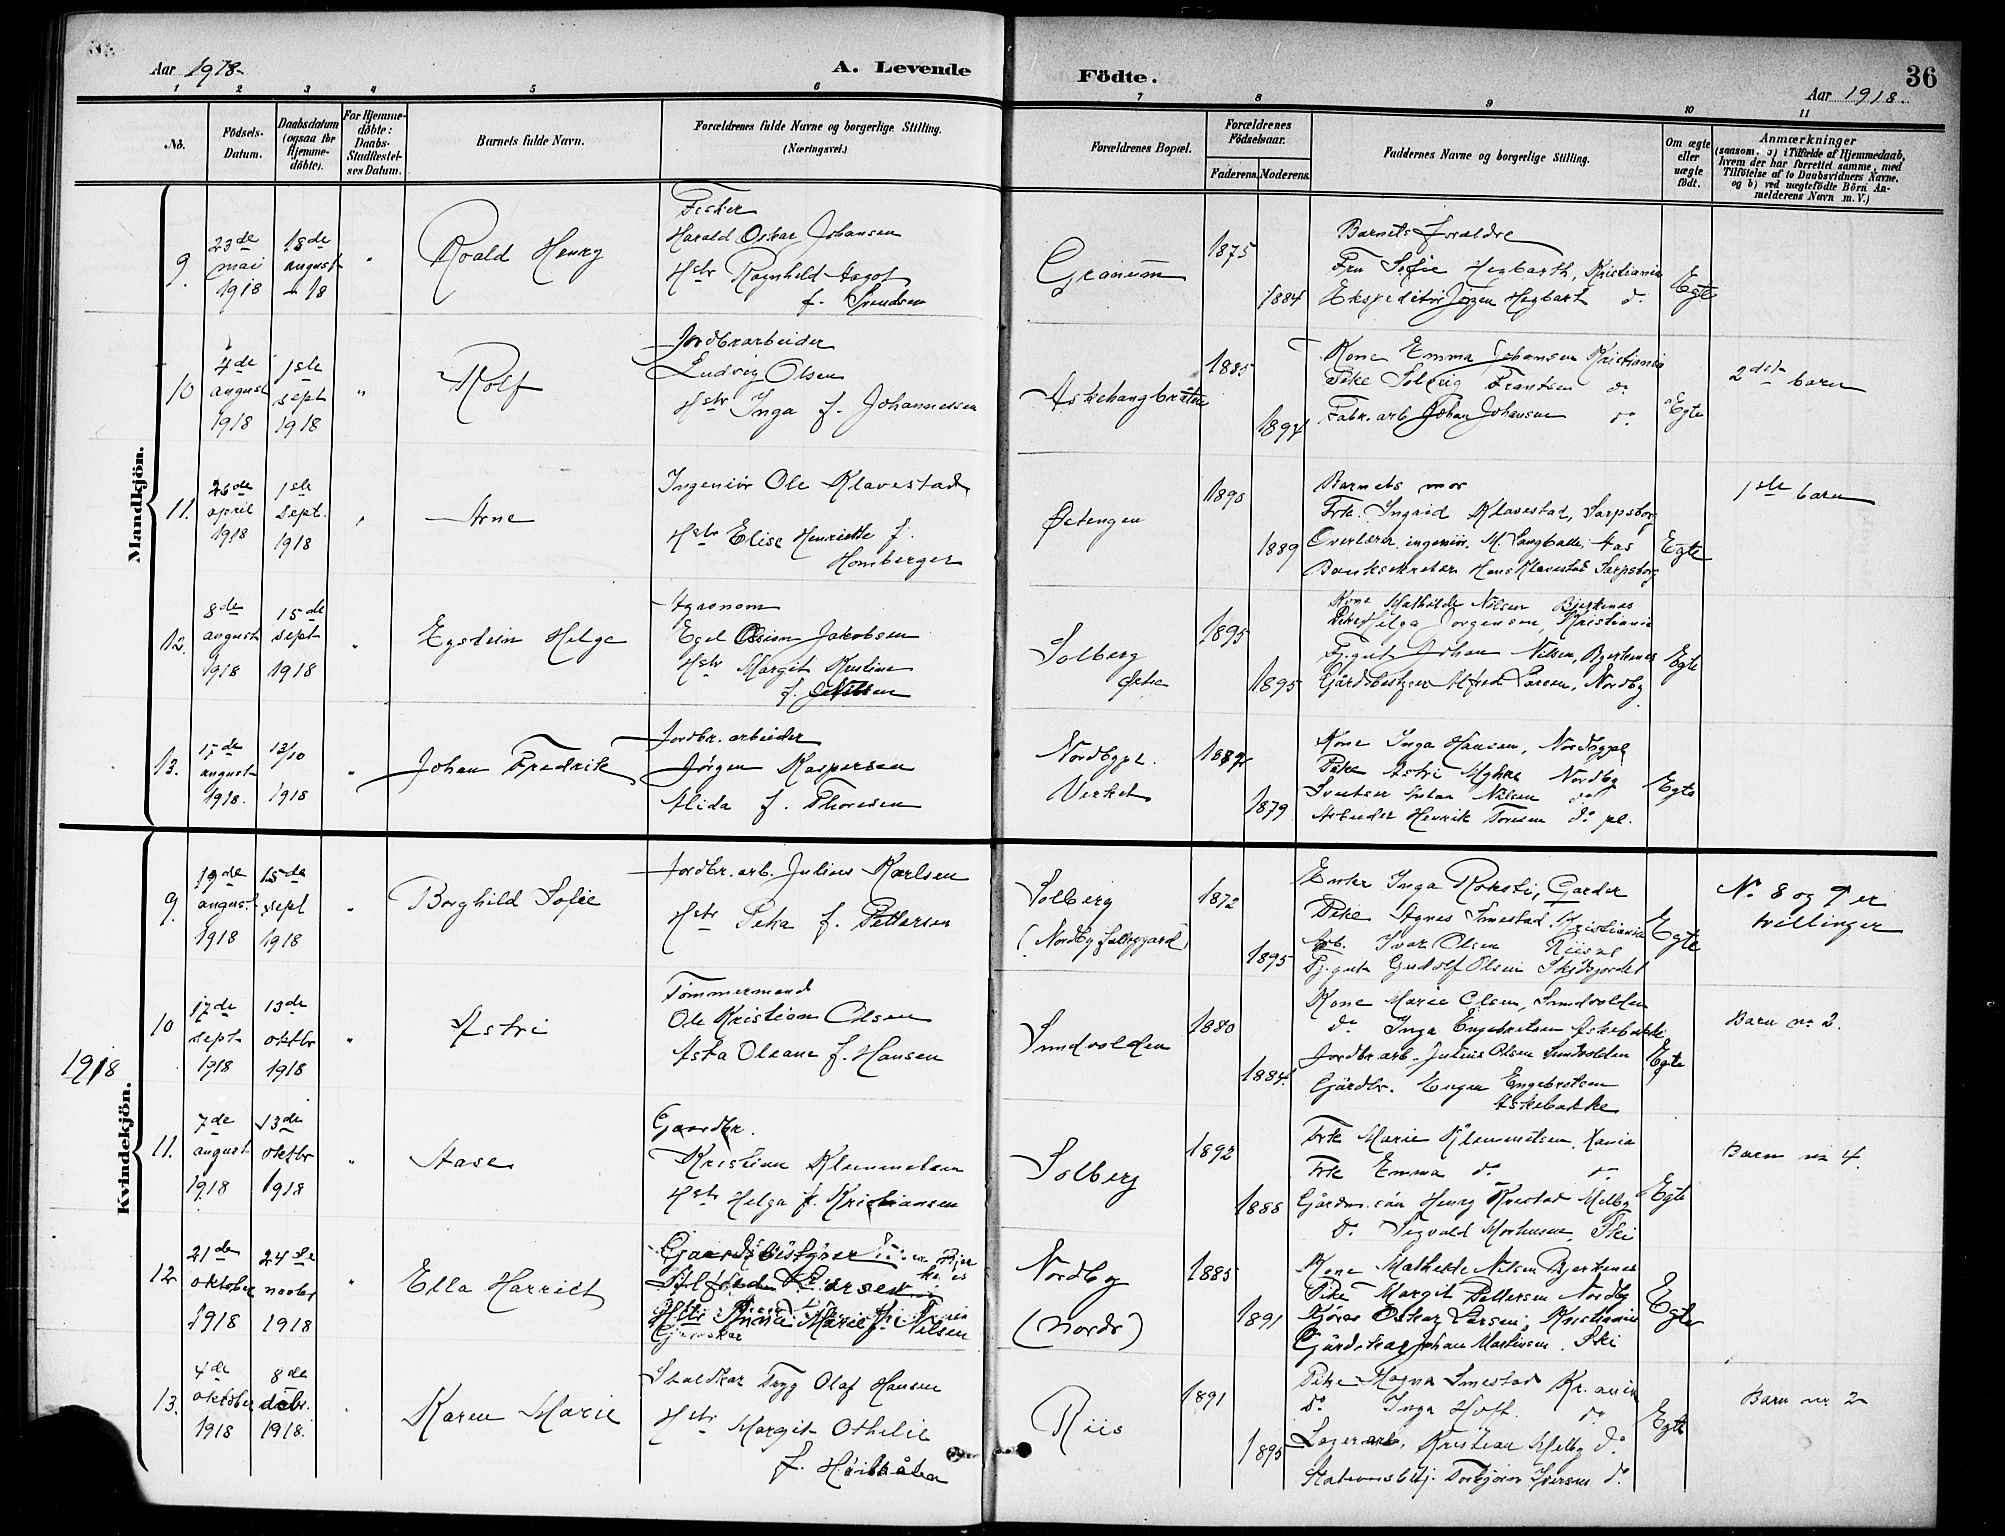 Aar 1918.
A. Levende Födte.
36
Aar 1918.
1 2 3 4 5 6 7 8 9 10 11
No.
Födsels-Datum.
Daabsdatum (ogsaa for Hjemme-döbte).
For Hjemme-döbte: Daabs-Stadfæstel-ses Datum.
Barnets fulde Navn.
Forældrenes fulde Navne og borgerlige Stilling.
(Næringsvei.)
Forældrenes Bopæl.
Forældrenes Födselsaar.
Faderens. Moderens.
Faddernes Navne og borgerlige Stilling.
Om ægte eller uægte födt.
Anmærkninger
(saasom: a) i Tilfælde af Hjemmedaab, hvem der har forrettet samme, med Tilföielse af to Daabsvidners Navne. og b) ved uægtefödte Börn An-melderens Navn m. V.)
Mandkjön.
9.
23de mai 1918
18de august 18
"
Roald Henry
Fisker
Harald Oskar Johansen
Hstr Ragnhild Aagot
f. Svendsen
Granum
1875
1884
Barnets forældre
Fru Sofie Hegbarth, Kristiania
Ekspeditör Jörgen Hegbart do
Egte
10
4de august 1918
1ste sept 1918
"
Rolf
Jordbrarbeider
Ludvig Olsen
Hstr Inga f. Johannessen
Askehangbråten
1885
1894
Kone Emma Johansen Kristiania
Pike Solveig Frantsen do
Fabr. arb Johan Johansen do
Egte
2det barn
11.
26de april 1918
1ste sept. 1918
"
Arne
Ingeniör Ole Klavestad
Hstr Elise Henriette f.
Homberger
Östengen
1890
1889
Barnets mor
Frk. Ingrid Klavestad, Sarpsborg
Overlærer, ingeniör. M. Langballe, Aas
Banksekretær Hans Klavestad Sarpsborg
Egte
1ste barn
12.
8de august 1918
15de sept 1918
"
Eystein Helge
Agronom
Egil Jakobsen
Hstr Margit Kristine
f. Nilsen
Solberg
östre
1895
1895
Kone Mathilde Nilsen Bjerkenes
Pike Helga Jörgensen, Kristiania
Tj.gut Johan Nilsen, Bjerkenes
Gårdsbestyrer Alfred Larsen, Nordby
Egte
13.
17de august 1918.
13/10 1918
"
Johan Fredrik
Jordbr. arbeider
Jörgen Kaspersen
Alida f. Thoresen
Nordbypl.
Virket
1879
Kone Inga Hansen, Nordbypl
Pike Astri Myhre Nordby
Sveitser Nilsen do
Arbeider Henrik Toresen do pl.
Egte
Kvindekjön.
1918
9.
19de august 1918
15de sept 1918
"
Borghild Sofie
Jordbr. arb. Julius Karlsen
Hstr Petra f. Pettersen
Solberg
(Nordby Solbergaard)
1872
1895
Enke Inga Roksti, Garder
Pike Agnes Smestad Kristiania
Arb. Ivar Olsen Riispl
Tj.gut Gudolf Olsen Skidsjordet
Egte
No 8 og 9 er tvillinger
10
17de sept 1918
13de oktbr 1918
"
Astri
Tömmermand
Ole Kristian Olsen
Asta Oleane f. Hansen
Sundvolden
1880
1884.
Kone Marie Olsen, Sundvolden
do Inga Engebretsen Askebakke
Jordbr arb. Julius Olsen Sundvolden
Gårdbr. Eugen Engebretsen
Askebakke
Egte
Barn no 2.
11.
7de august 1918
13de oktbr 1918
"
Aase
Gaardbr.
Kristian Klemmetsen
Hstr Helga f. Kristiansen
Solberg
1892
1888
Frk Marie Klemmetsen, Kania
Frk Emma do do
Gårdm. sön Henry Kvestad Melby
do Sigvald Mortensen, Ski
Egte
Barn no 4.
12
21de oktober 1918
24de novbr 1918
"
Ella Harriet
Gaardsbestyrer
Alfred Larsen
Hstr Anna Marie f. Nilsen
Nordby
(nordr)
1885
1891
Kone Mathilde Nilsen Bjerkenes
Pike Margit Pettersen Nordby
Kjörer Oskar Larsen, Kristiania
Gårdskar Johan Martinsen. Ski
Egte
13.
4de oktober 1918
8de decbr. 1918.
Karen Marie
Staldkar Tryg Olaf Hansen
Hstr Margit Othilie
f. Höibråten
Riis
1891
1895
Pike Magna Smestad Kr.ania
do Inga Hoff. do
Lagerarb, Kristian Melby do
Stationsbetj. Torbjörn Iversen do
Egte
Barn nr 2